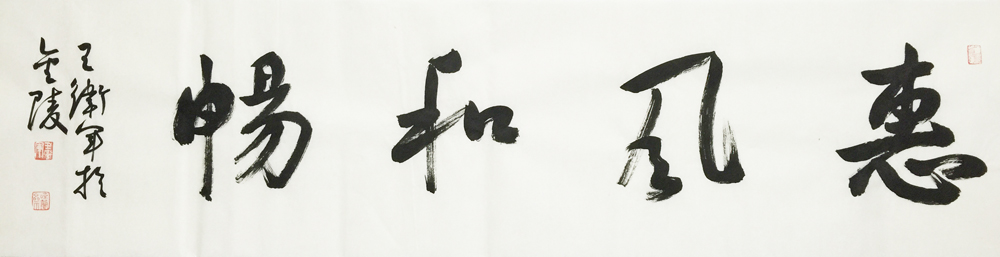 惠風和暢
王衛軍於
金陵